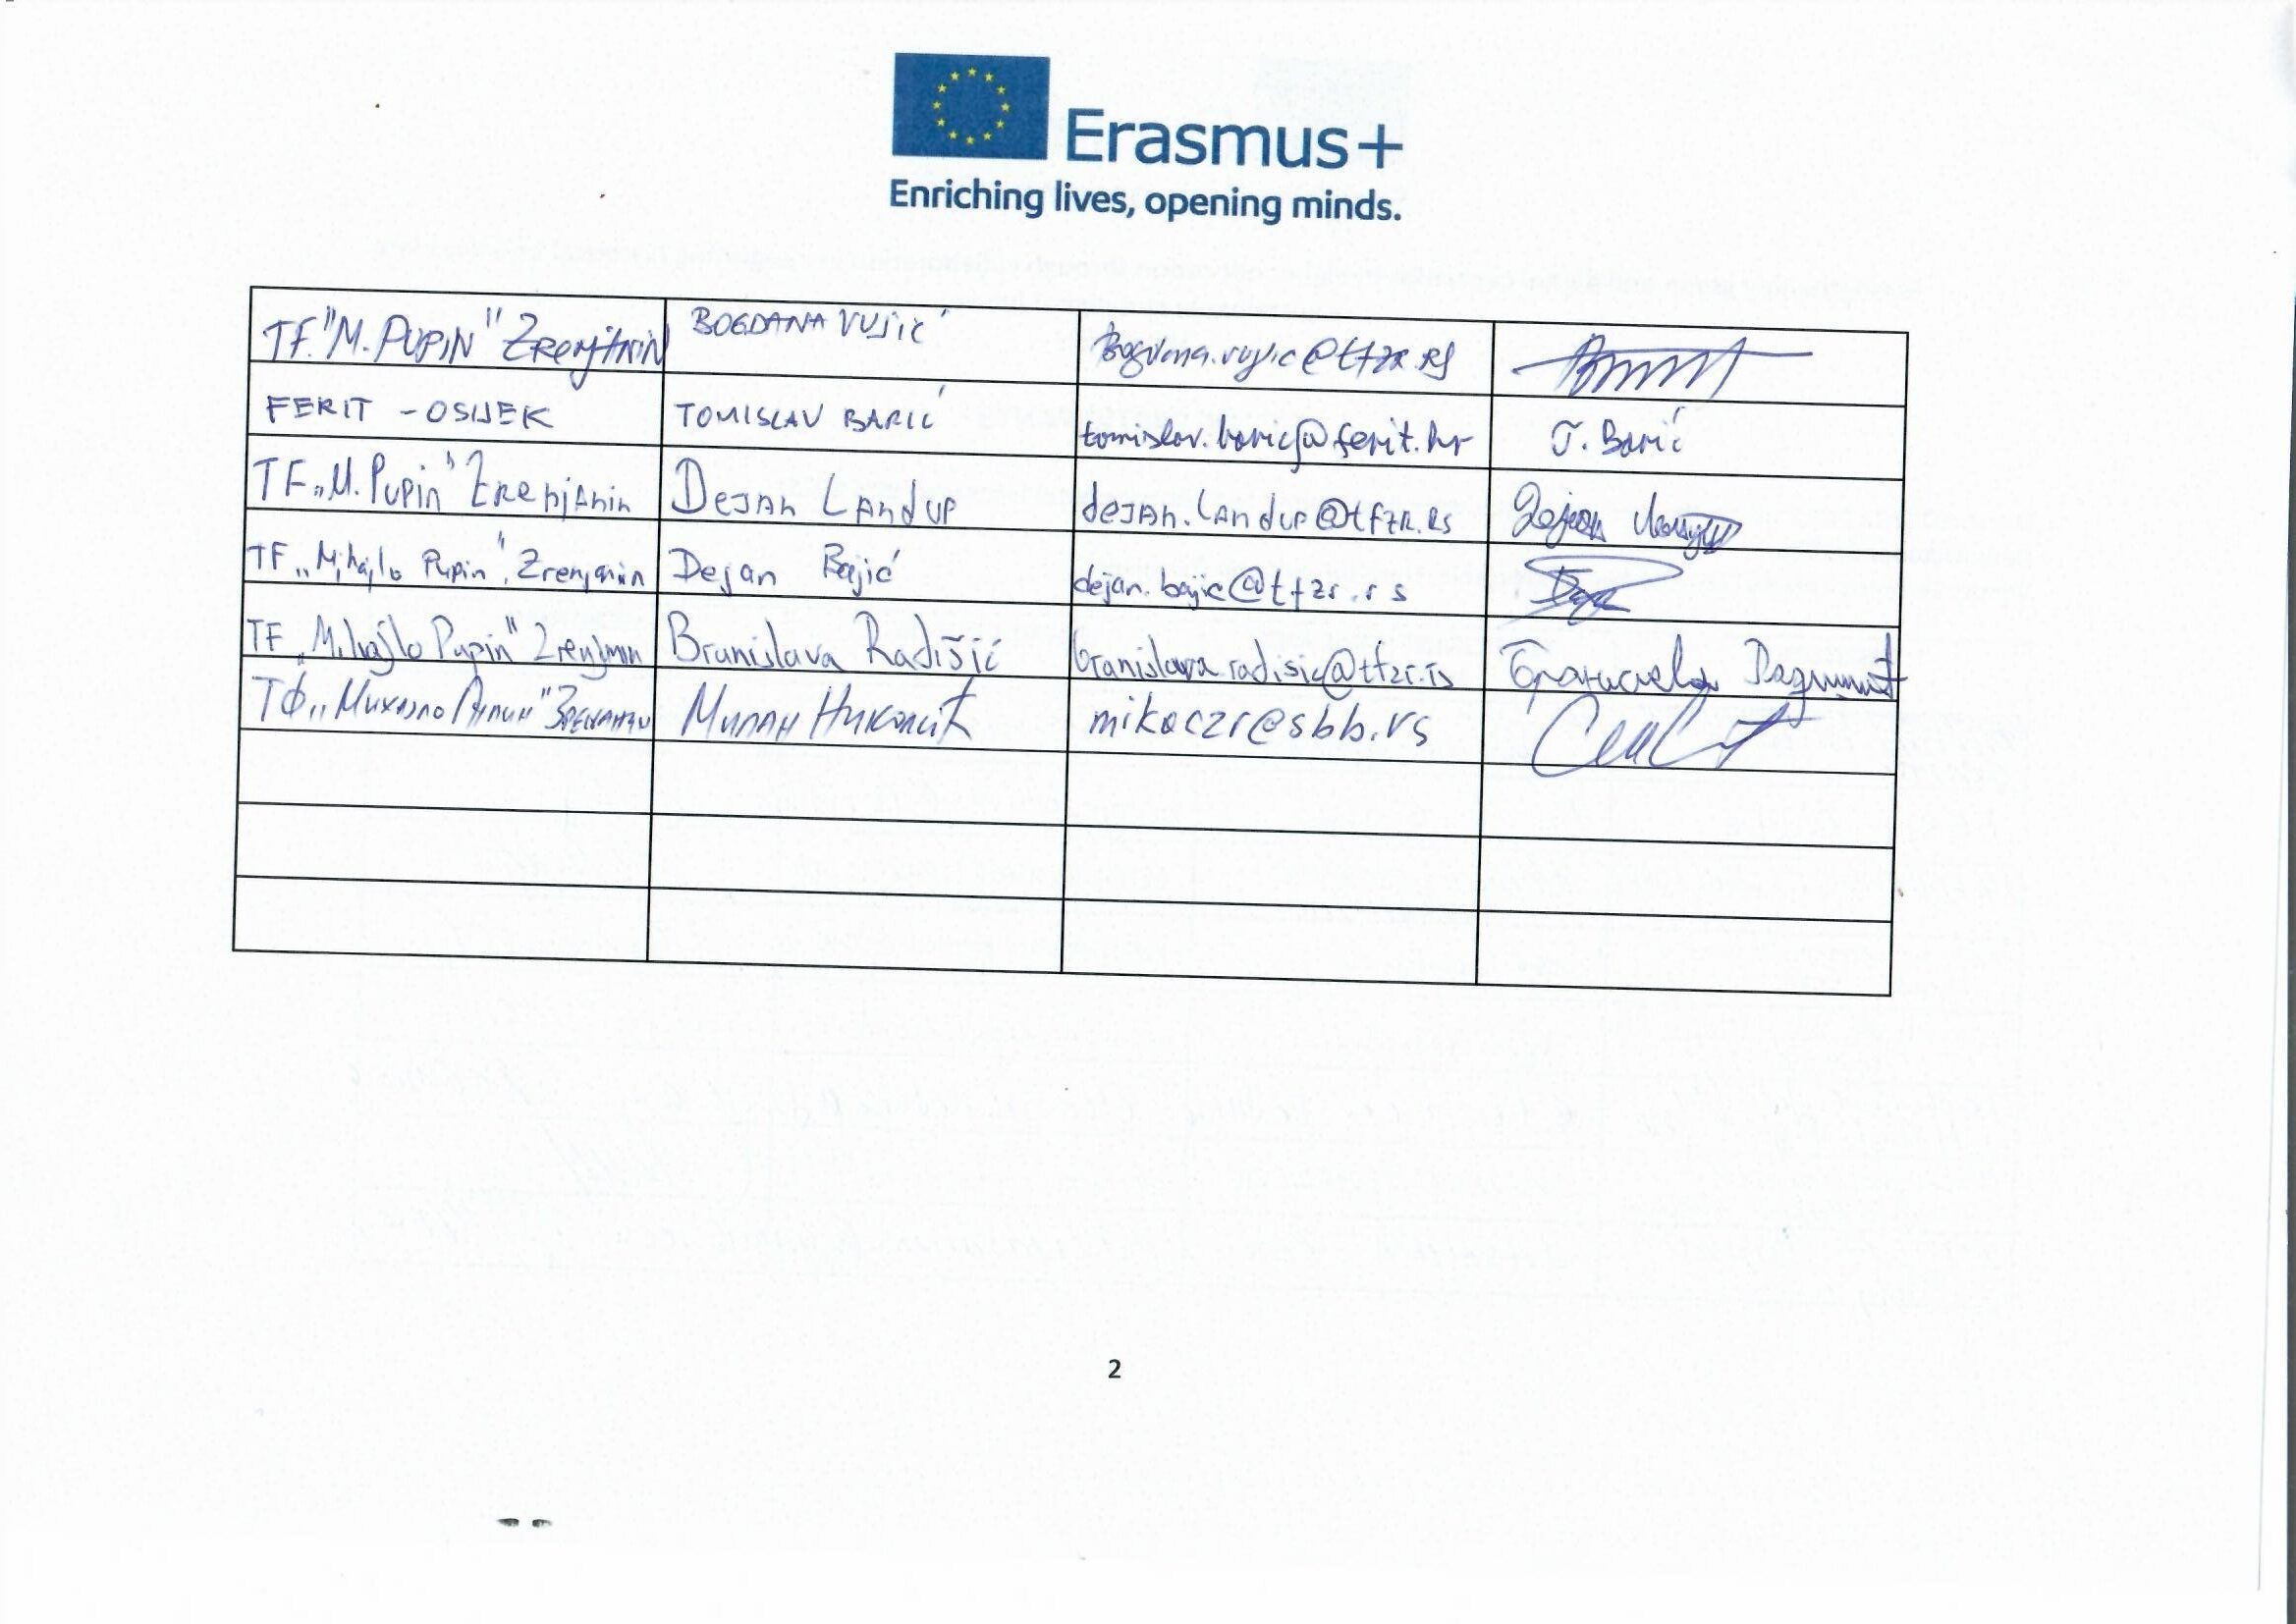 Erasmus+
Enriching lives, opening minds.
TF. "M. PUPIN" ZRENJANIN BOGDANA VUJIĆ Bogdana.vujic@tfzr.rs
FERIT - OSIJEK TOMISLAV BARIĆ tomislav.baric@ferit.hr T. Barić
TF „M. Pupin" Zrenjanin Dejan Landup dejan.landup@tfzr.rs Дејан
TF „Mihajlo Pupin", Zrenjanin Dejan Bajić dejan.bajic@tfzr.rs
TF „Mihajlo Pupin" Zrenjanin Branislava Radišić branislava.radisic@tfzr.rs Бранислава Радишић
ТФ „Михајло Пупин" Зрењанин Милан Николић mikaczr@sbb.rs
2